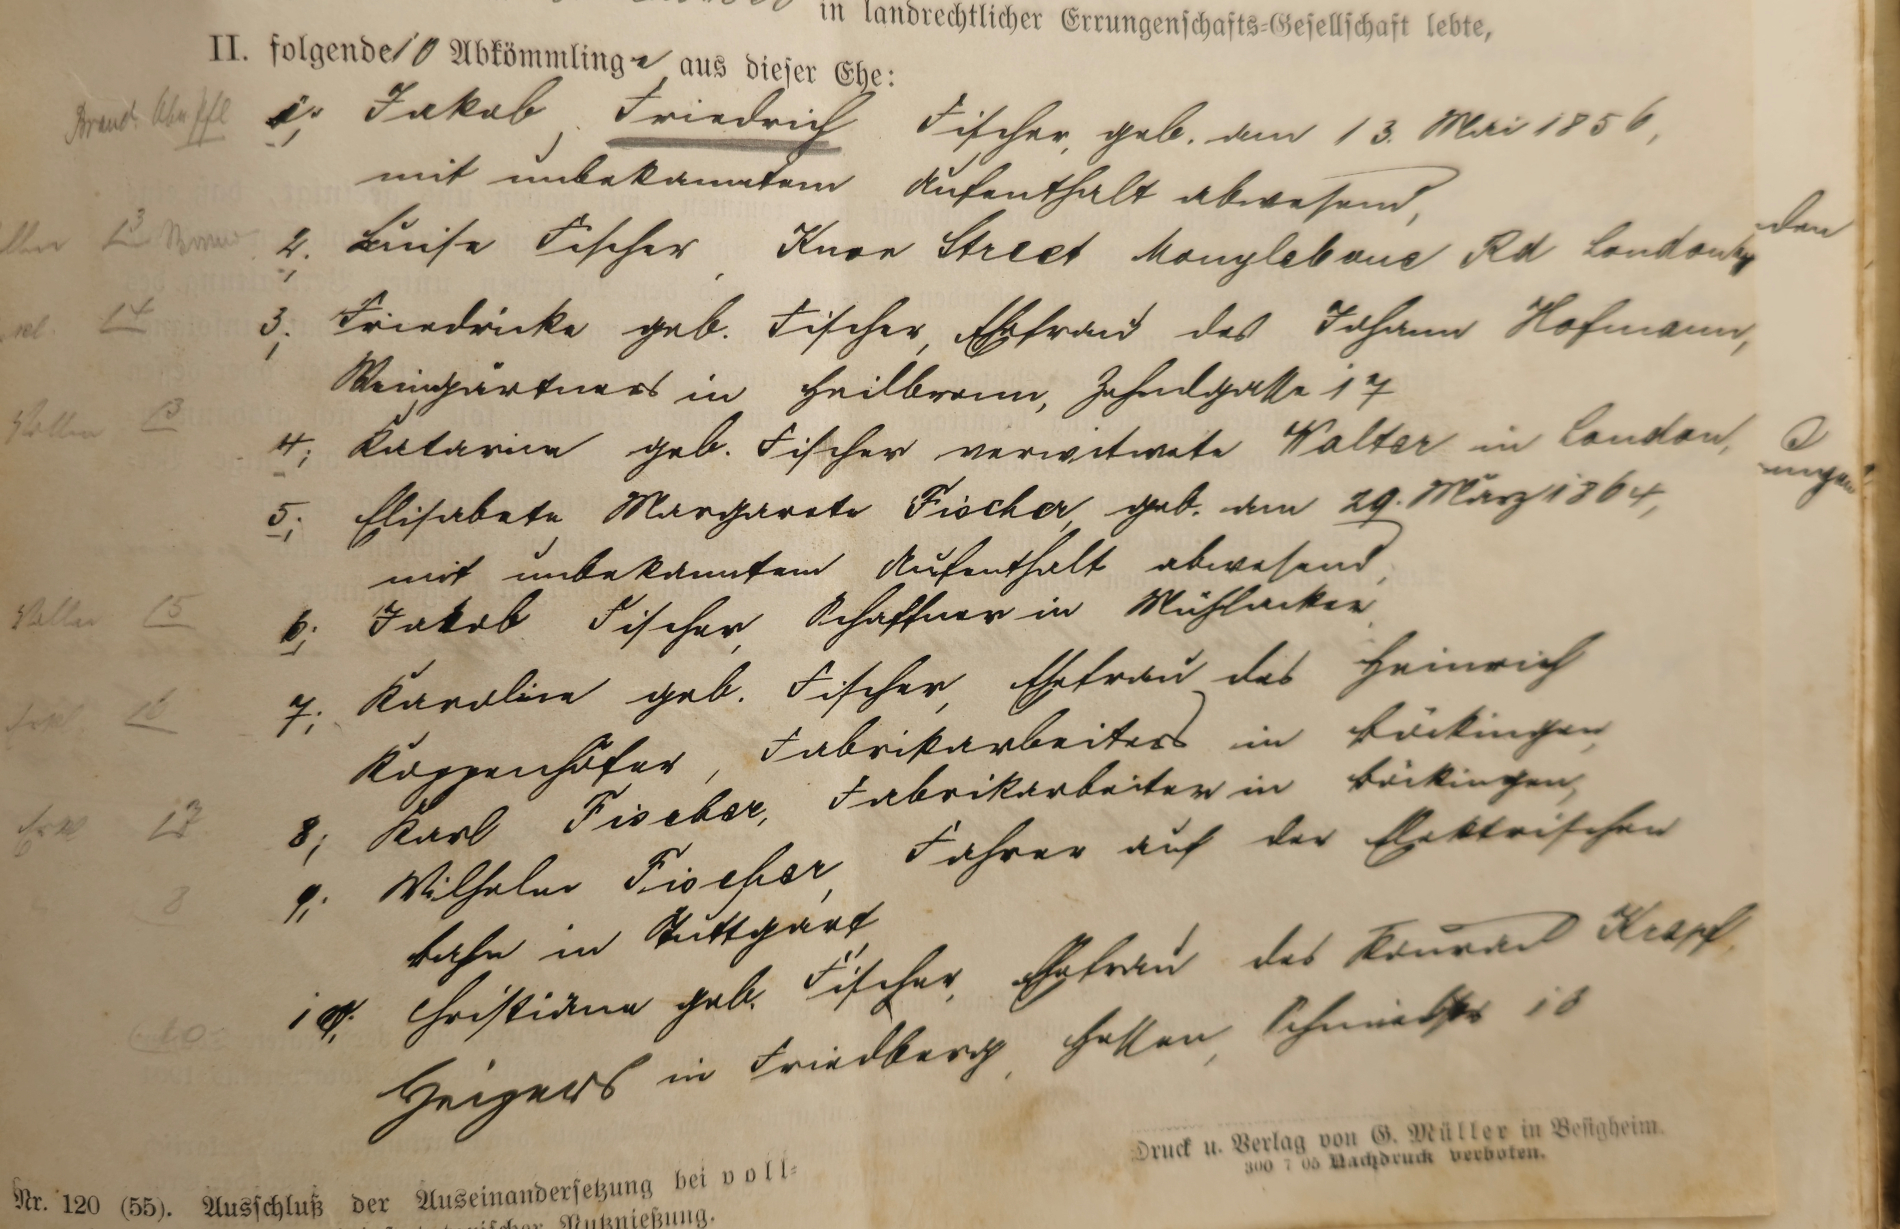 in landrechtlicher Errungenschafts-Gesellschaft lebte,
II. folgende 10 Abkömmlinge aus dieser Ehe:
1; Jakob Friedrich Fischer, geb. am 13. Mai 1856,
mit unbekanntem Aufenthalt abwesend,
2; Luise Fischer, Knox Street Monylebone Rd London,
3; Friedricke geb. Fischer, Ehefrau des Johann Hofmann,
Weingärtners in Heilbronn, Zehndgasse 17
4; Katarine geb. Fischer verwitwete Walter in London,
5; Elisabete Margarete Fischer, geb. am 29. März 1864,
mit unbekanntem Aufenthalt abwesend,
6; Jakob Fischer, Schaffner in Mühlacker
7; Karoline geb. Fischer, Ehefrau des Heinrich
Koppenhöfer, Fabrikarbeiters in Böckingen,
8; Karl Fischer, Fabrikarbeiter in Böckingen,
9; Wilhelm Fischer, Fahrer auf der Elektrischen
bahn in Stuttgart
10; Christiane geb. Fischer, Ehefrau des Konrad Krapf,
Heizers in Friedberg, Hessen, 18
Druck u. Verlag von G. Müller in Besigheim.
300 7 05 Nachdruck verboten.
Nr. 120 (55). Ausschluß der Auseinandersetzung bei voll-
Nutznießung.